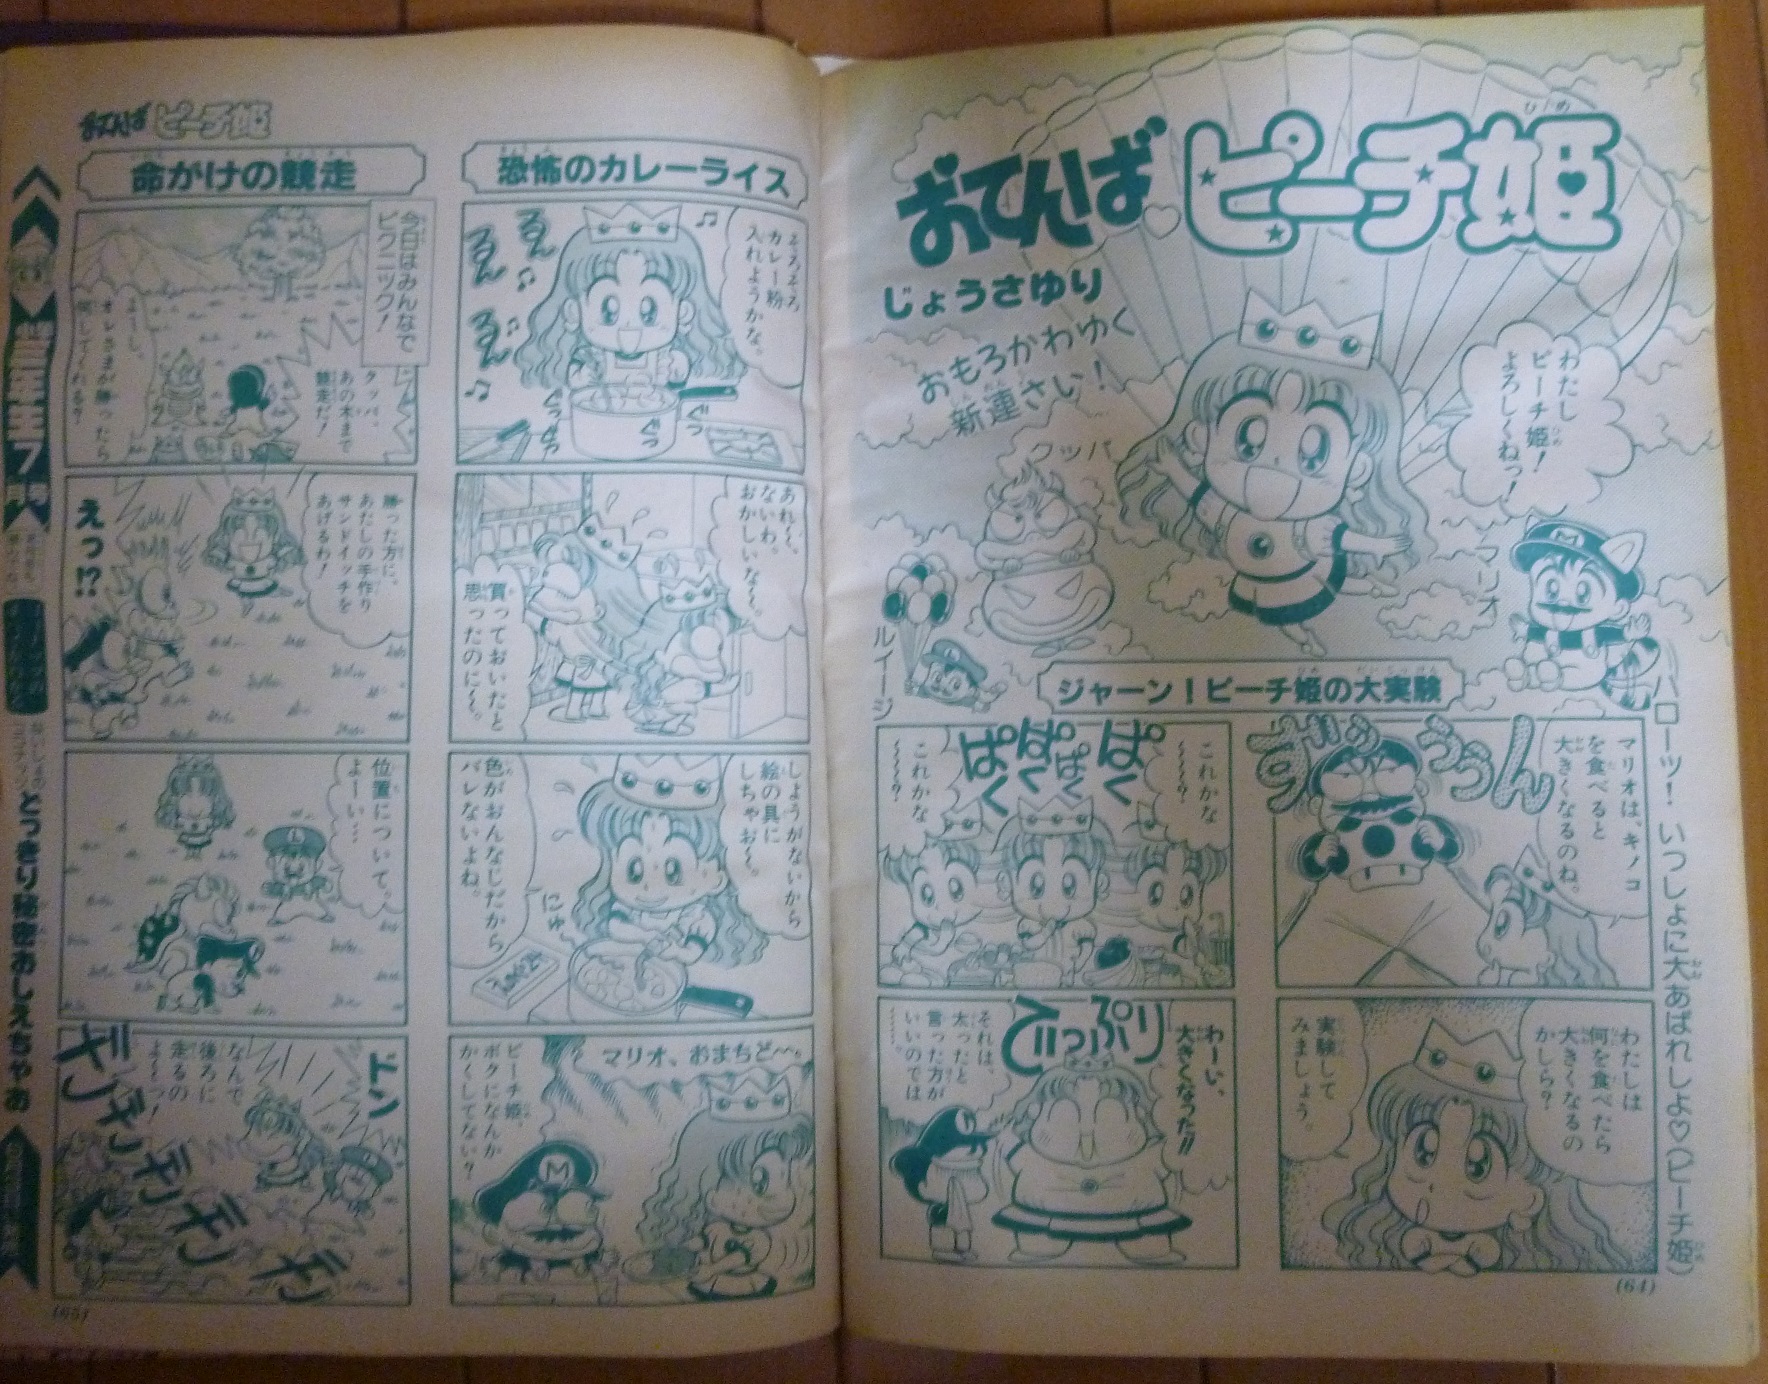 おてんば♡ピーチ姫
ひめ
じょうさゆり
おもろかわゆく
新連さい！
わたし
ピーチ姫！
よろしくねっ！
クッパ
マリオ
ルイージ
ハローッ！いっしょに大あばれしよ♡（ピーチ姫）
ジャーン！ピーチ姫の大実験
マリオは、キノコ
を食べると
大きくなるのね。
わたしは
何を食べたら
大きくなるの
かしら？
実験して
みましょう。
これかな
〜〜〜？
ぱく
ぱく
ぱく
ぱく
これかな
〜〜〜？
わーい、
大きくなった!!
でっぷり
それは、
太ったと
言った方が
いいのでは
(64)
おてんばピーチ姫
恐怖のカレーライス
そろそろ
カレー粉
入れようかな。
るん
るん
るん
ぐつ
ぐつ
あれ〜、
ないわ。
おかしいな〜。
買っておいたと
思ったのに〜。
しょうがないから
絵の具に
しちゃお〜。
色がおんなじだから
バレないよね。
にゅ
マリオ、おまちど〜。
ピーチ姫、
ボクになんか
かくしてない？
命がけの競走
今日はみんなで
ピクニック！
クッパ、
あの木まで
競走だ！
よーし、
オレさまが勝ったら
何してくれる？
勝った方に、
あたしの手作り
サンドイッチを
あげるわ！
えっ!?
位置について。
よーい…
ドン
なんで
後ろに
走るの
よ〜っ！
とっきり秘密おしえちゃお